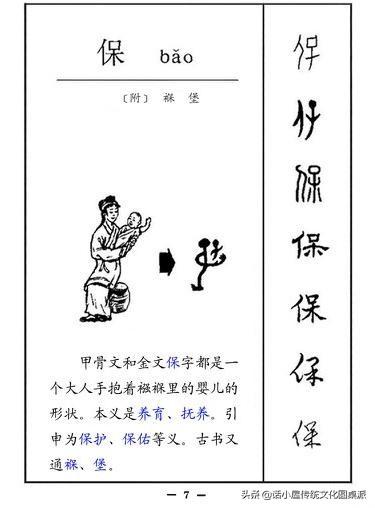 保 bǎo
〔附〕 褓 堡
甲骨文和金文保字都是一
个大人手抱着襁褓里的婴儿的
形状。本义是养育、抚养。引
申为保护、保佑等义。古书又
通褓、堡。
保
保
保
保
保
— 7 —
头条 @诺小屋传统文化圆桌派